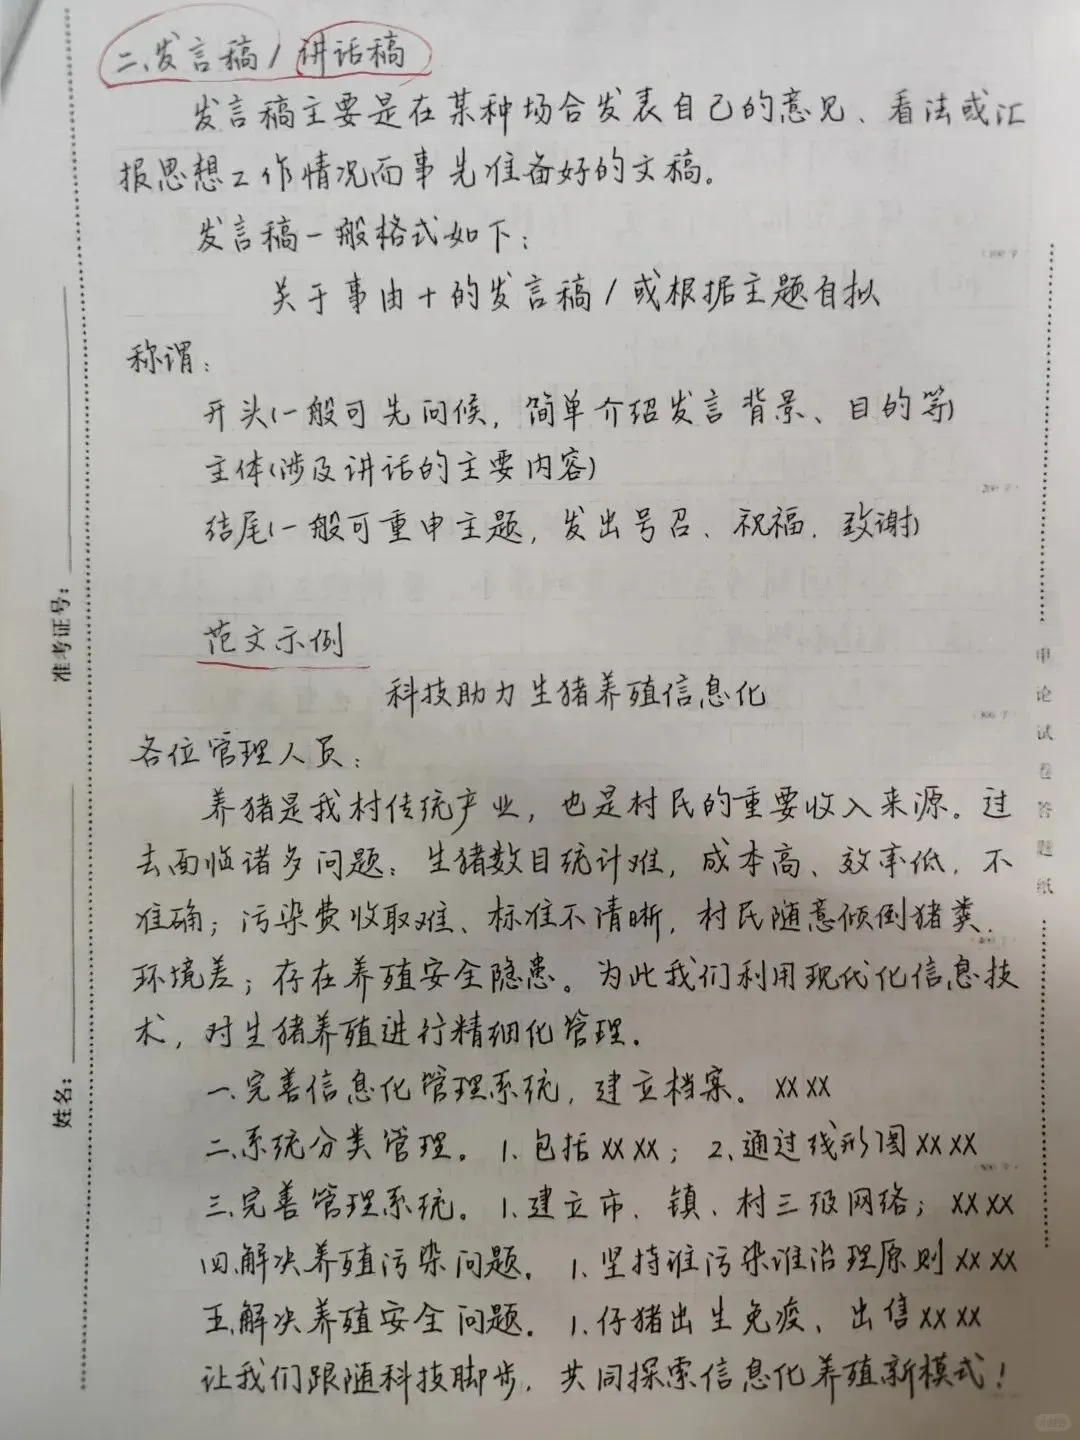 二、发言稿/讲话稿
发言稿主要是在某种场合发表自己的意见、看法或汇
报思想工作情况而事先准备好的文稿。
发言稿一般格式如下:
关于事由+的发言稿/或根据主题自拟
称谓:
开头(一般可先问候,简单介绍发言背景、目的等)
主体(涉及讲话的主要内容)
结尾(一般可重申主题,发出号召、祝福、致谢)
范文示例
科技助力生猪养殖信息化
各位管理人员:
养猪是我村传统产业,也是村民的重要收入来源。过
去面临诸多问题:生猪数目统计难,成本高、效率低,不
准确;污染费收取难、标准不清晰,村民随意倾倒猪粪、
环境差;存在养殖安全隐患。为此我们利用现代化信息技
术,对生猪养殖进行精细化管理。
一、完善信息化管理系统,建立档案。XXXX
二、系统分类管理。1、包括XXXX;2、通过线形图XXXX
三、完善管理系统。1、建立市、镇、村三级网络;XXXX
四、解决养殖污染问题。1、坚持谁污染谁治理原则XXXX
五、解决养殖安全问题。1、仔猪出生免疫、出售XXXX
让我们跟随科技脚步,共同探索信息化养殖新模式!
准考证号:
姓名:
申论试卷答题纸